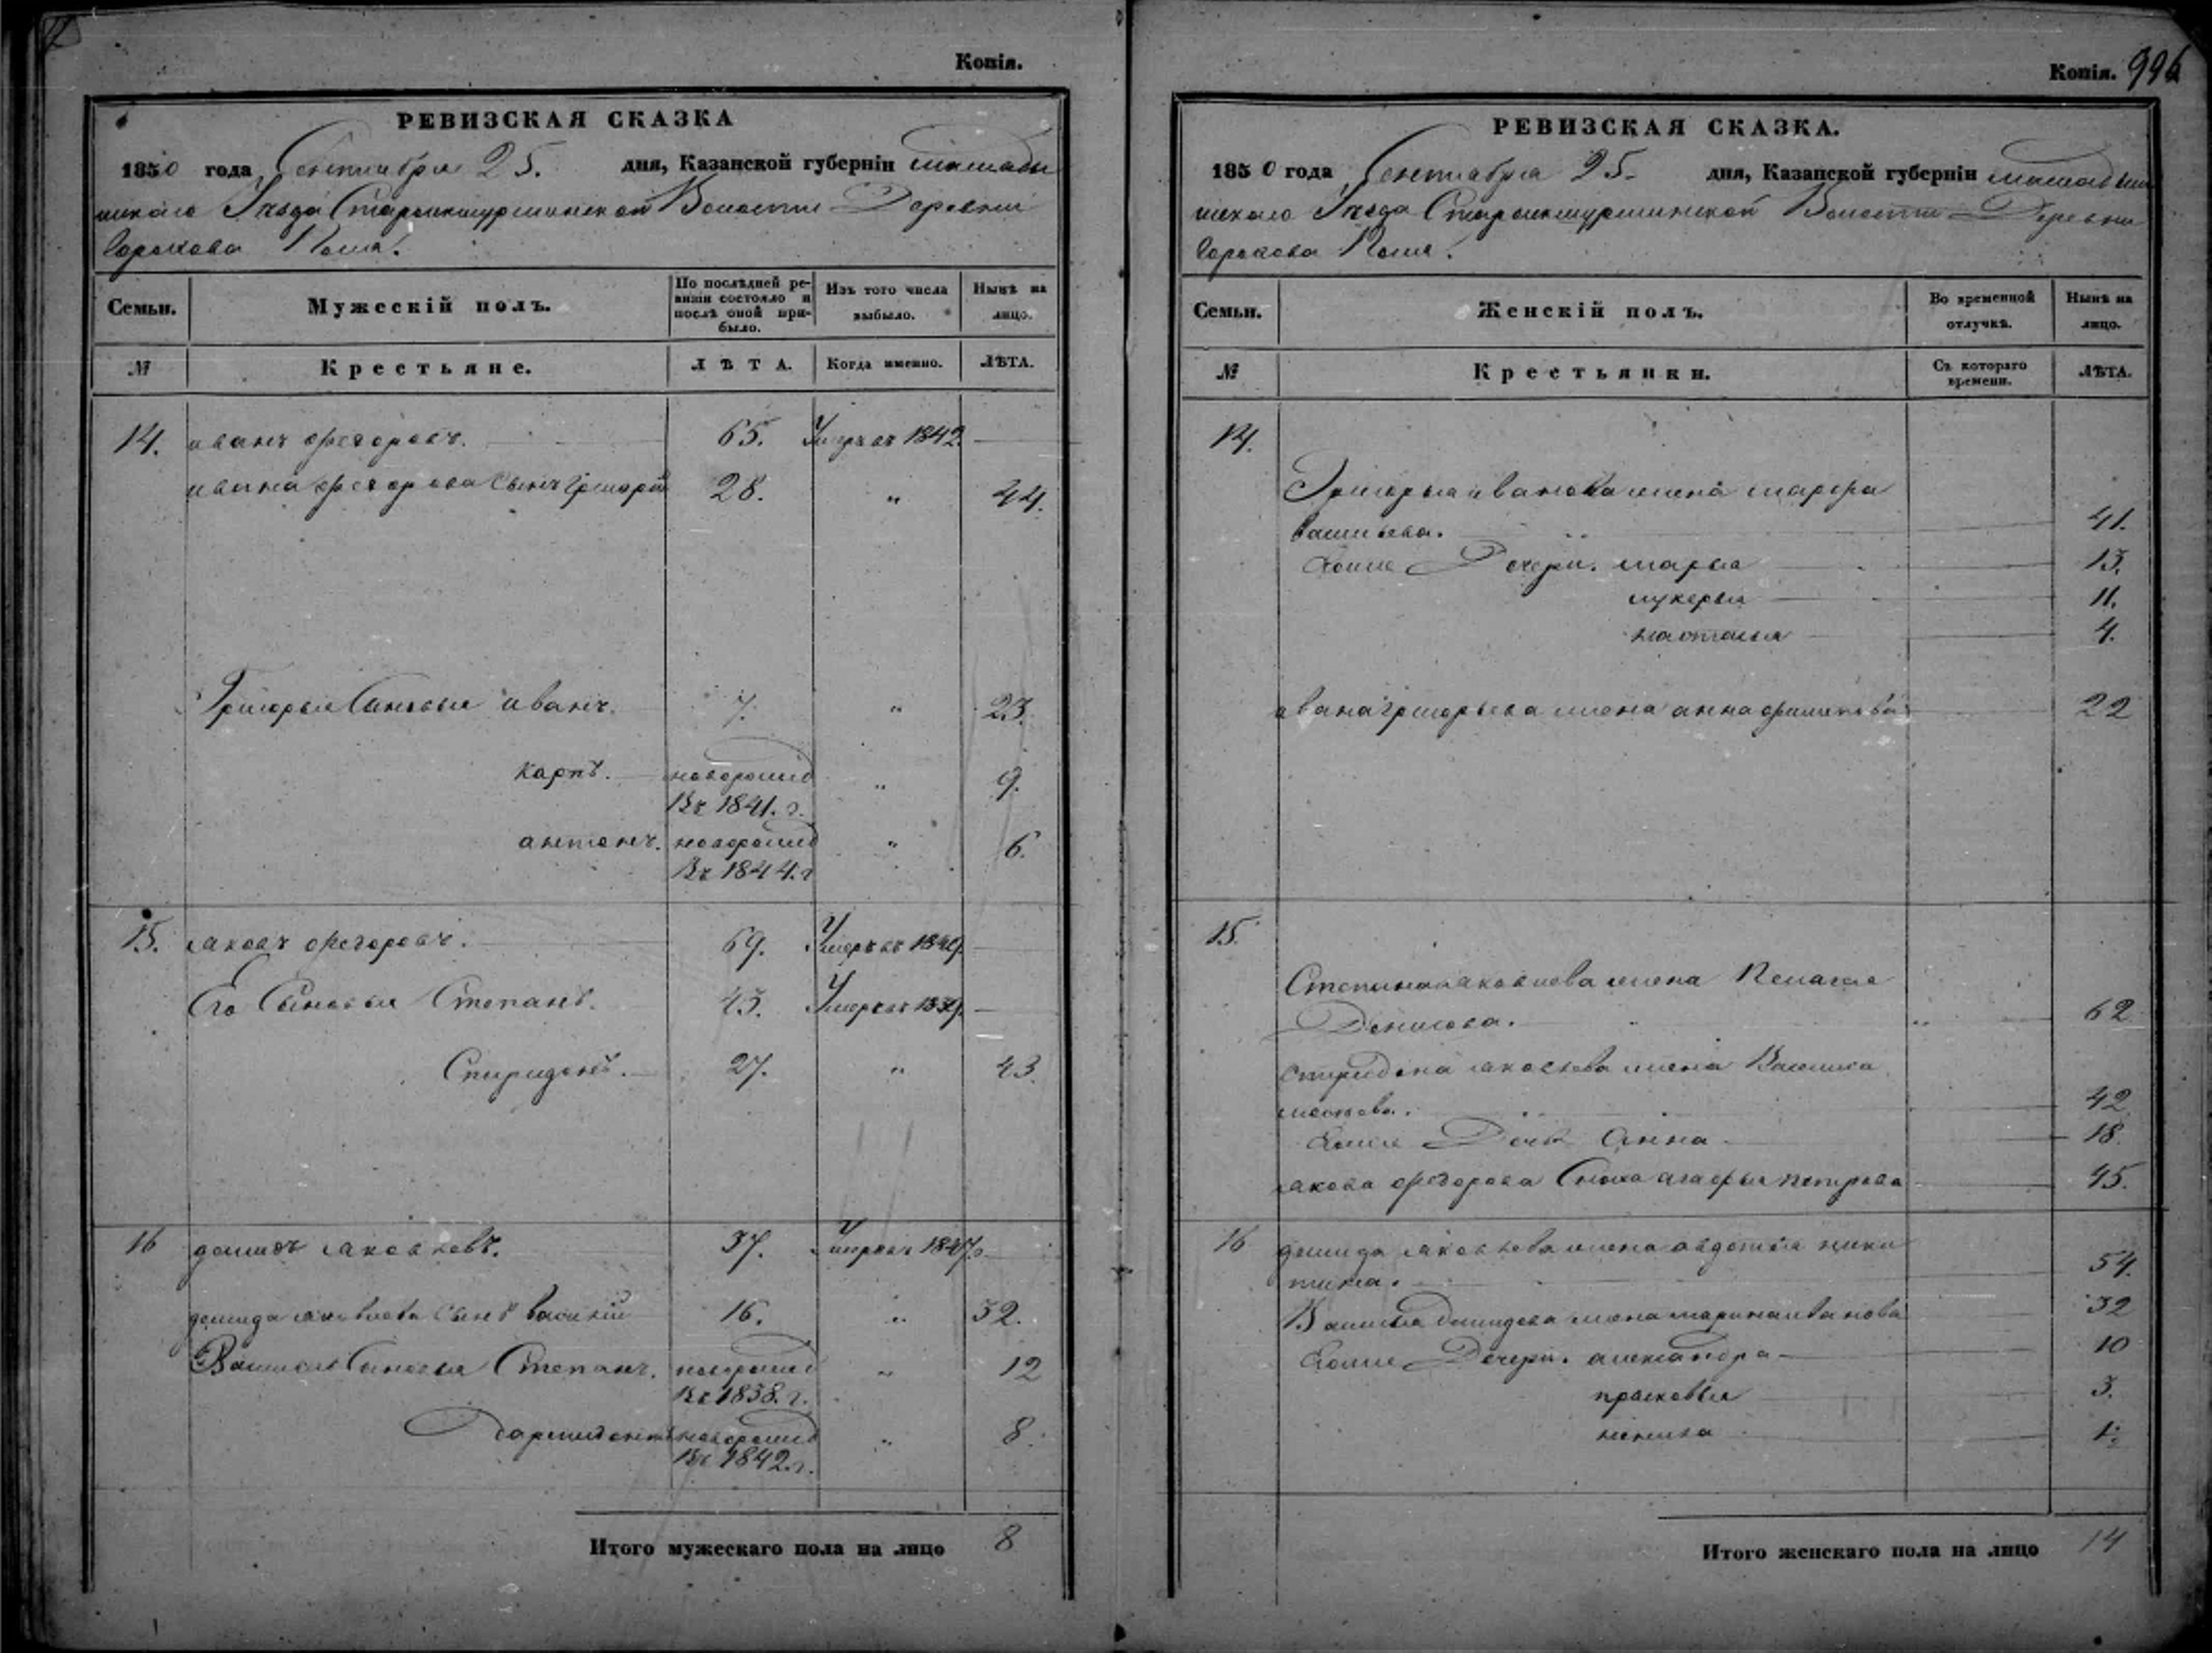 Копія.
РЕВИЗСКАЯ СКАЗКА
1850 года Сентября 25. дня, Казанской губерніи мамады
шскаго Уѣзда Староикшурминской Волости Деревни
Горохова Поля.
Семьи. Мужескій полъ. По послѣдней ре-
визіи состояло и
послѣ оной при-
было. Изъ того числа
выбыло. Нынѣ на
лицо.
№ Крестьяне. ЛѢТА. Когда именно. ЛѢТА.
14. иванъ федоровъ. 65. Умеръ въ 1842.
ивана федорова сынъ григорій 28. " 44.
Григорья Сыновья иванъ. 7. " 23.
карпъ. новорожд
Въ 1841. г. " 9.
антонъ. новорожд
Въ 1844. г " 6.
15. яковъ федоровъ. 69. Умеръ въ
Его Сыновья Степанъ. 43. Умеръ въ
Спиридонъ. 27. " 43.
16 демидъ яковлевъ. 37. Умеръ въ 1847.
демида яковлева сынъ василій 16. " 32.
Василья Сыновья Степанъ. новорожд
Въ 1838. г. " 12
новорожд
Въ 1842. г. " 8.
Итого мужескаго пола на лицо 8
Копія. 996
РЕВИЗСКАЯ СКАЗКА.
1850 года Сентября 25. дня, Казанской губерніи мамадыш
шскаго Уѣзда Староикшурминской Волости Деревни
Горохова Поля.
Семьи. Женскій полъ. Во временной
отлучкѣ. Нынѣ на
лицо.
№ Крестьянки. Съ котораго
времени. ЛѢТА.
14.
Григорья иванова жена марфа
васильева. 41.
Дочери. марья 13.
лукерья 11.
настасья 4.
ивана григорьева жена анна 22
15.
Степана яковлева жена Пелагея
Денисова. 62
спиридона яковлева жена Василиса
42
Дочь Анна 18.
якова федорова Сноха агафья петрова 45.
16 демида яковлева жена авдотья ники
тина. 54.
Василья демидова жена марина иванова 32
Дочери. александра 10
прасковья 3.
1.
Итого женскаго пола на лицо 14